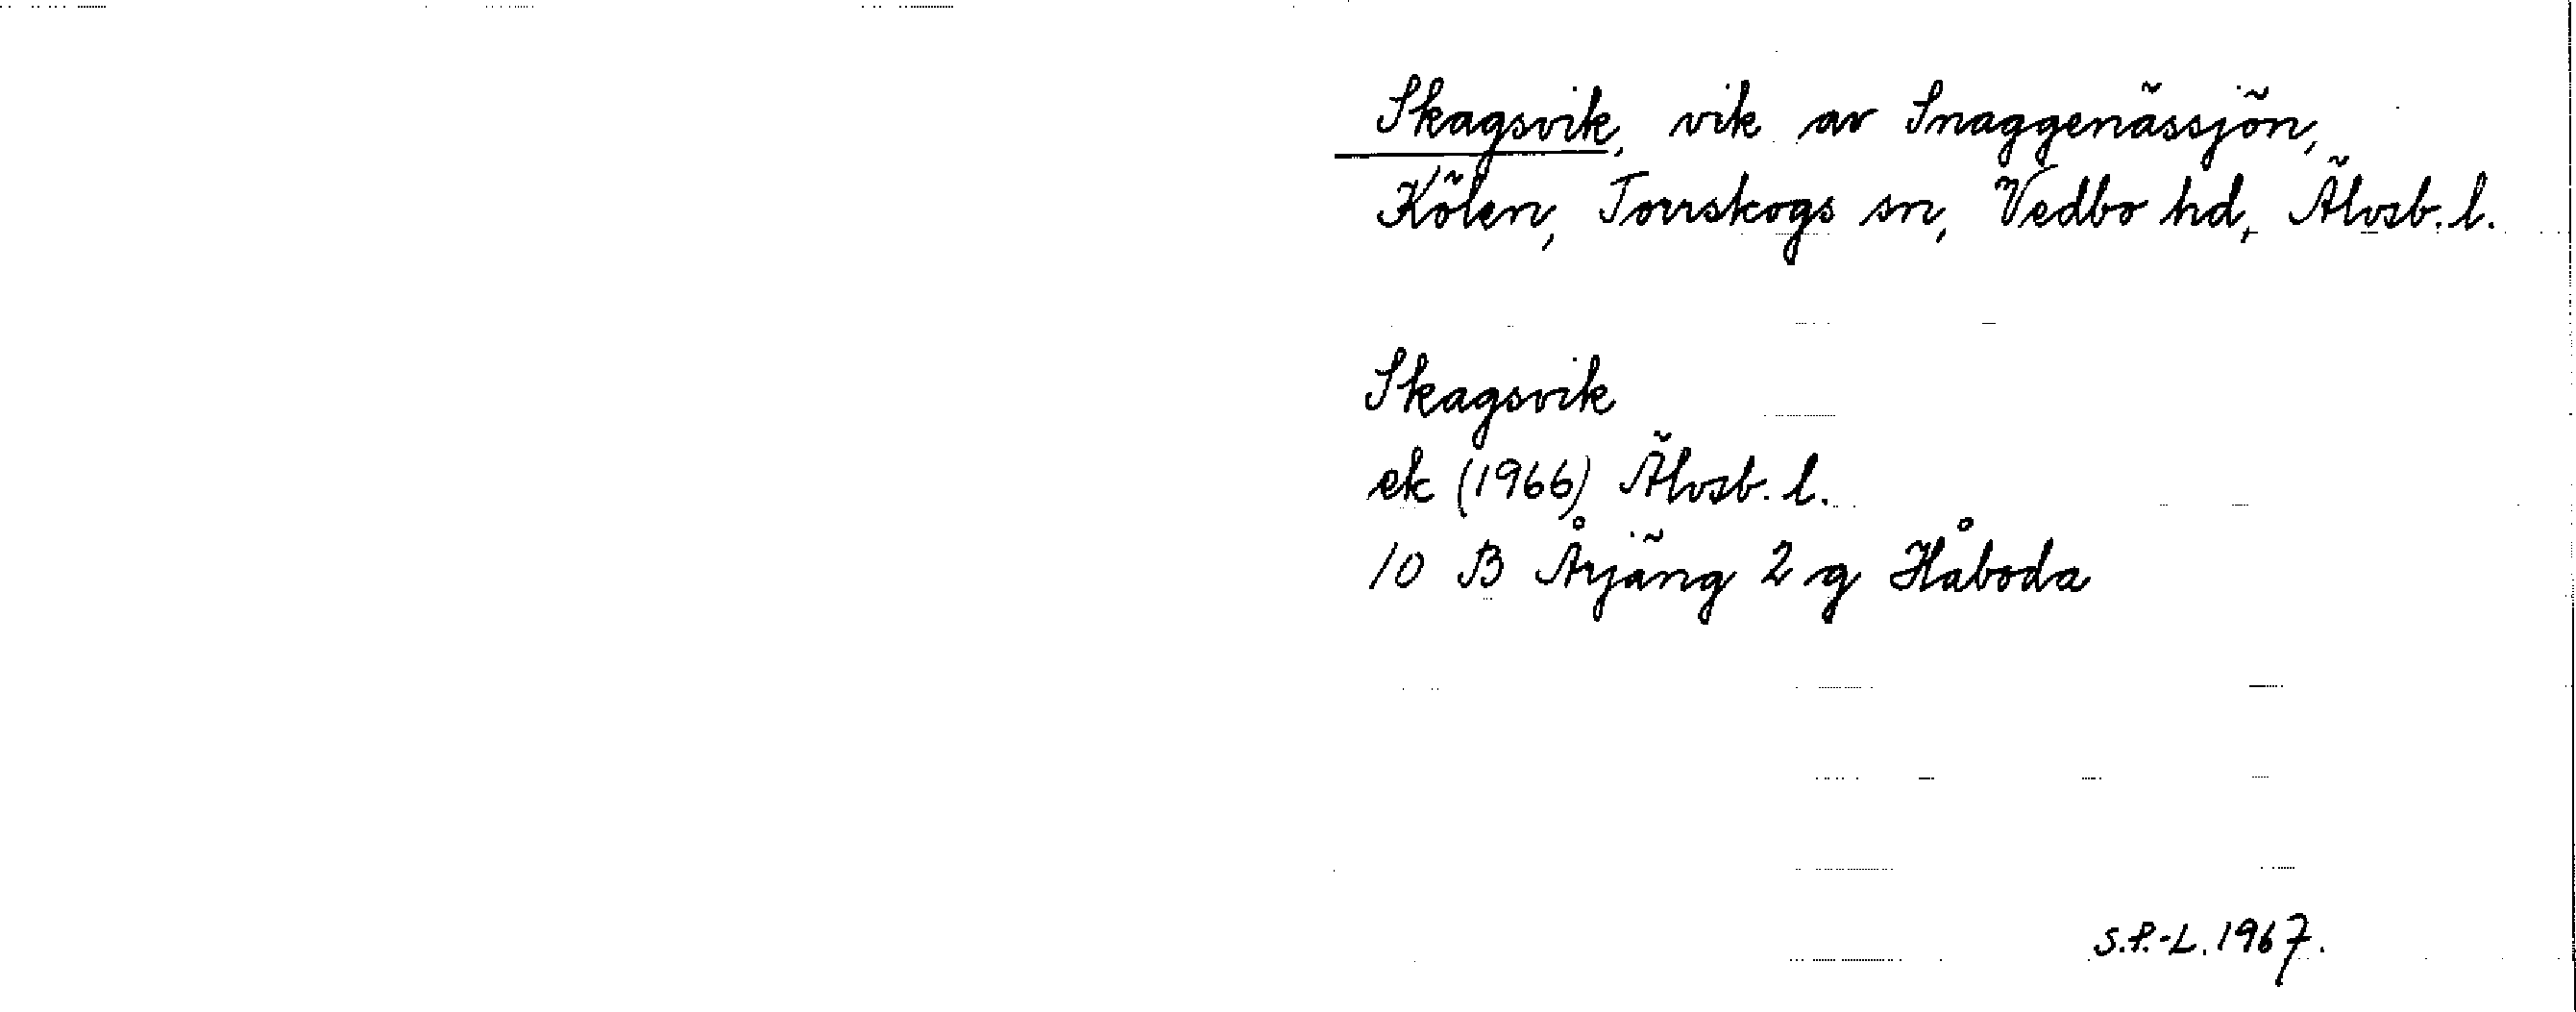 Skagsvik, vik av Snaggenässjön,
Kölen, Torrskogs sn, Vedbo hd, Älvsb. l.
Skagsvik
ek (1966) Älvsb. l.
10 B Årjäng 2 g Håboda
S.P.-L. 1967.